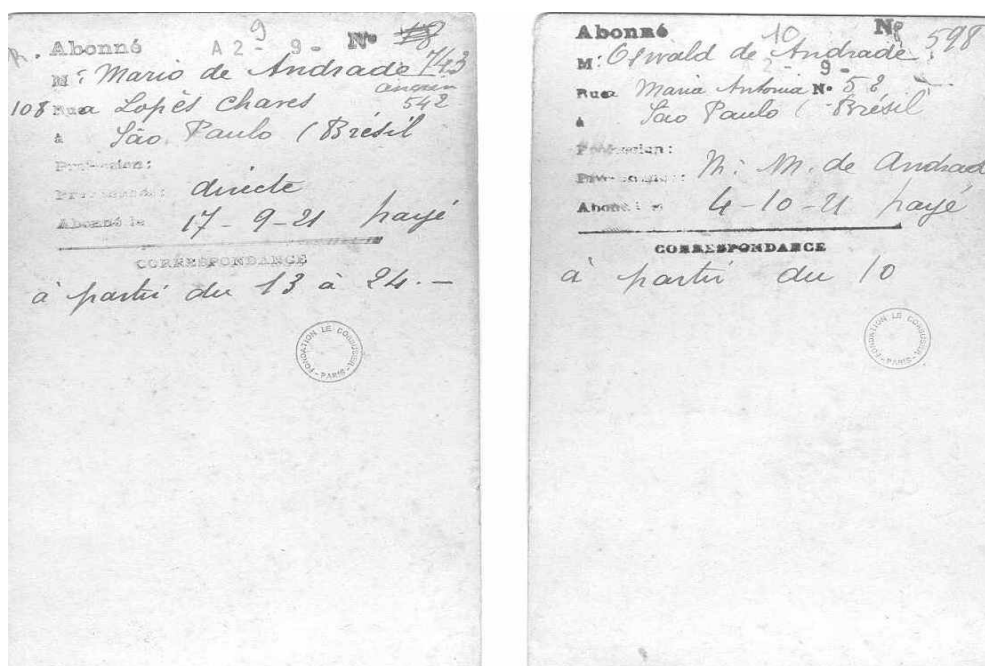 R. Abonné A 2 - 9 - 9 No
M: Mario de Andrade 743
ancien
108 Rue Lopès Chaves 542
à São Paulo (Brésil
Profession:
Provenance: directe
Abonné le 17 - 9 - 21 payé
CORRESPONDANCE
à partir du 13 à 24. —
FONDATION LE CORBUSIER - PARIS -
Abonné 10 No 598
M: Oswald de Andrade
2 - 9 -
Rue Maria Antonia No 52
à São Paulo (Brésil
Profession:
Provenance: M. de Andrade
Abonné le 4 - 10 - 21 payé
CORRESPONDANCE
à partir du 10
FONDATION LE CORBUSIER - PARIS -